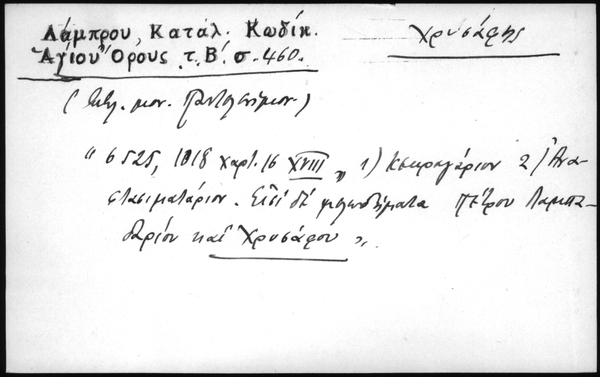 Λάμπρου, Κατάλ. Κωδίκ. Χρυσάφης
Ἁγίου Ὄρους τ. Β΄. σ. 460.
(Βιβλ. μον. Παντελεήμον.)
" 6525, 1018 χαρτ. 16 XVIII „ 1) Κεκραγάριον 2) Ἀνα-
στασιματάριον. Εἰσὶ δὲ μελουργήματα Πέτρου Λαμπα-
δαρίου καὶ Χρυσάφου ".